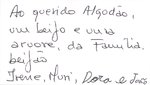 Ao querido Algodão,
um beijo e uma
arvore, da Família.
beijão
Irene, Muri, Dora e João